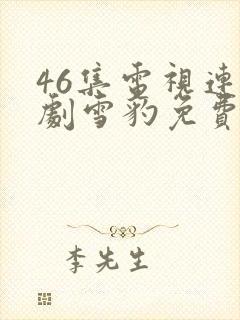 46集電視連
劇雪豹免費
李先生